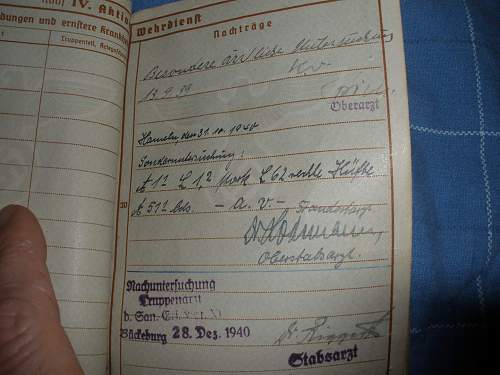 IV. Aktiv
bungen und ernstere Krankh
Truppenteil, Kriegsschi
Wehrdienst
Nachträge
Besondere ärztliche Untersuchung
13.9.39 Kv
Oberarzt
Hameln, den 31.10.1940
Sonderuntersuchung:
A 1² L 1,2 L 62 rechte Hüfte
20
A 51² bds. - a. v. -
Oberstabsarzt.
Nachuntersuchung
Truppenarzt
b. San.
Bückeburg 28. Dez. 1940
Dr.
Stabsarzt